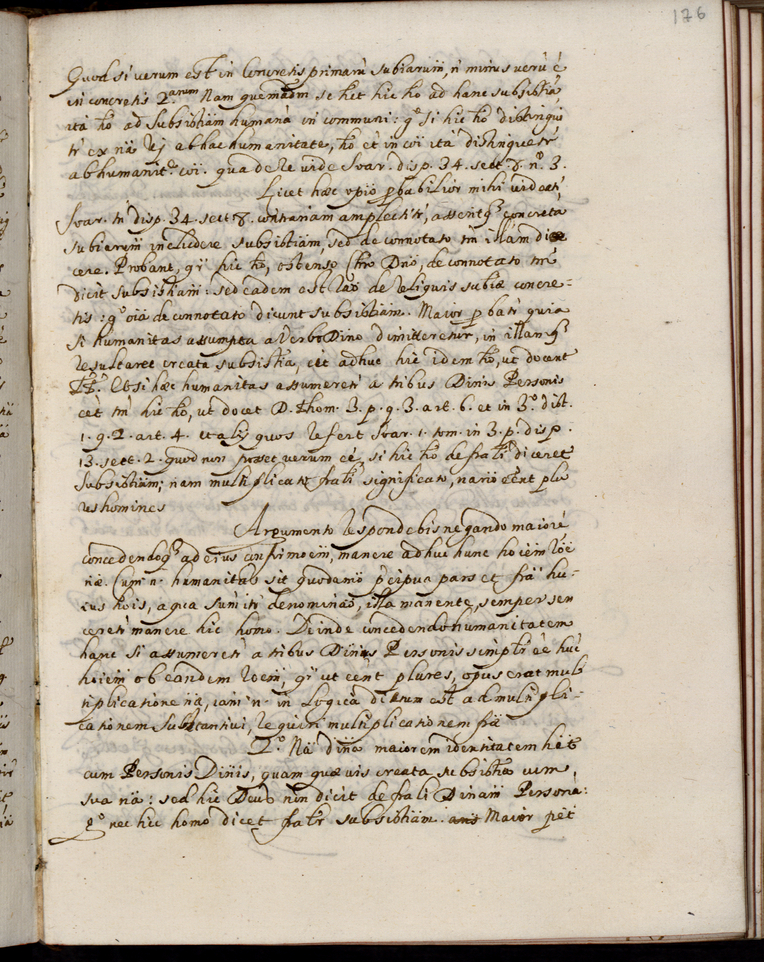 176
Quod si verum est in Concretis primarũ subiarum, ñ minus verũ ẽ
in concretis 2.arum Nam quemadm se het hic hõ ad hanc subsistiã,
ità hõ ad subsistiam humanã in communi: gº si hic hõ distingui
tr ex nã rej ab hac humanitate, hõ et in coi ità distinguetr
ab humanitº coi. qua de re vide Soar. disp. 34. sect. 8. nº. 3.
Licet hæc opiõ pbabilior mihi videatr,
Soar. tñ disp. 34. sect. 8. contrariam amplectitr, asserit q concreta
subiarum includere subsistiam, sed de connotato tm illam di
cere. Probant, qr hic hõ, ostenso Chro Dnõ, de connotato tm
dicit subsistiam: sed eadem est raõ de reliquis subiæ concre-
tis: gº oia de connotato dicunt subsistiam. Maior pbatr quia
si humanitas assumpta a Verbo Divino dimitteretur, in illam q
resultaret creata subsistia, eet adhuc hic idem hõ, ut docent
TT. Et si hæc humanitas assumeretr a tribus Divis Personis
eet tm hic hõ, ut docet D. Thom. 3. p. q. 3. art. 6. et in 3.º dist.
1. q. 2. art. 4. et alij quos refert Soar. 1. tom. in 3. p. disp.
13. sect. 2. quod non posset verum eẽ, si hic hõ de frali diceret
subsistiam; nam multiplicato frali significato, nanõ eent plu
res homines
Argumento respondebis negando maiorẽ
concedendo q ad eius confirmoem, manere adhuc hunc hoiem roẽ
næ. Cum n. humanitas sit quodamõ pcipua pars et frã hu-
ius hois, a qua sumitr denominaõ, illa manente, semper sem
ceretr manere hic homo. Deinde concedendo humanitatem
hanc si assumeretr a tribus Divis Personis simplr eẽ hũc
hoiem ob eandem roem, qr ut eent plures, opus erat mul
tiplicatione næ, iam n. in Logica dictum est ad multipli-
cationem substantivi, requiri multiplicationem fræ
2.º Nã divina maiorem identitatem het
cum Personis Divis, quam quævis creata subsistia cum
sua nã: sed hic Deus non dicit de frali Divam Personã:
gº nec hic homo dicet fralr subsistiam. Maior pet